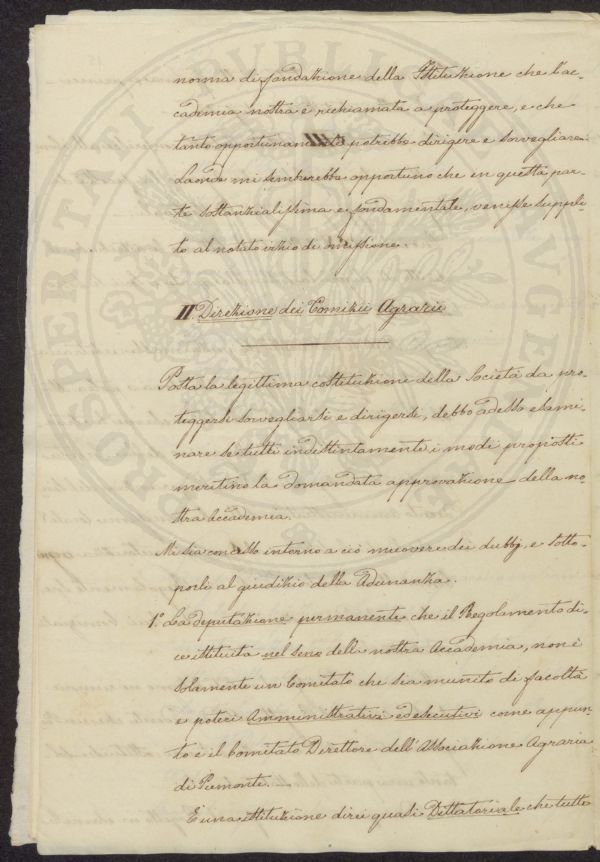 norma di fondazione della Istituzione che l'ac-
cademia nostra è richiamata a proteggere, e che
tanto opportunamente potrebbe dirigere e sorvegliare.
Laonde mi sembrerebbe opportuno che in questa par-
te sostanzialissima e fondamentale, venisse suppli-
to al notato vizio di omissione.
II. Direzione dei Comizii Agrarii
Posta la legittima costituzione della Società da pro-
teggersi sorvegliarsi e dirigersi, debbo adesso esami-
nare se tutti indistintamente i modi proposti
meritino la domandata approvazione della no-
stra Accademia.
Mi sia concesso intorno a ciò muovere dei dubbj, e sotto-
porli al giudizio della Adunanza.
1.° La deputazione permanente che il Regolamento di-
ce istituita nel seno della nostra Accademia, non è
solamente un Comitato che sia munito di facoltà
e poteri Amministrativi ed esecutivi come appun-
to è il Comitato Direttore dell'Associazione Agraria
di Piemonte.
È una istituzione direi quasi Dittatoriale che tutte
PROSPERITATI PUBLICAE AUGENDAE